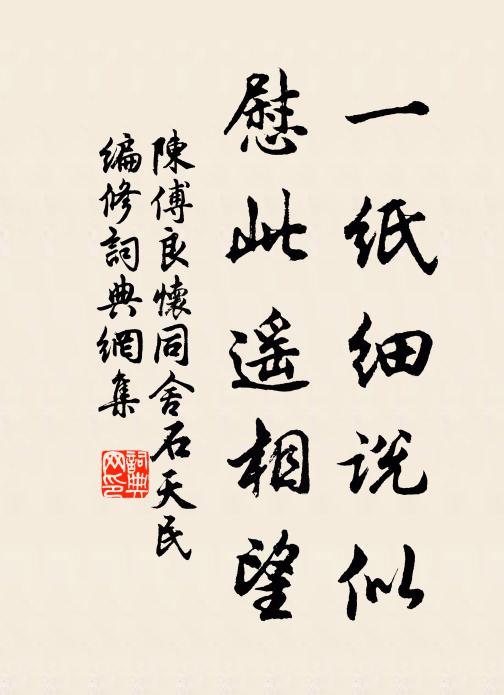 一紙细説似
慰此遥相望
陳傅良懷同舍石天民
编修詞典網集
詞典網印